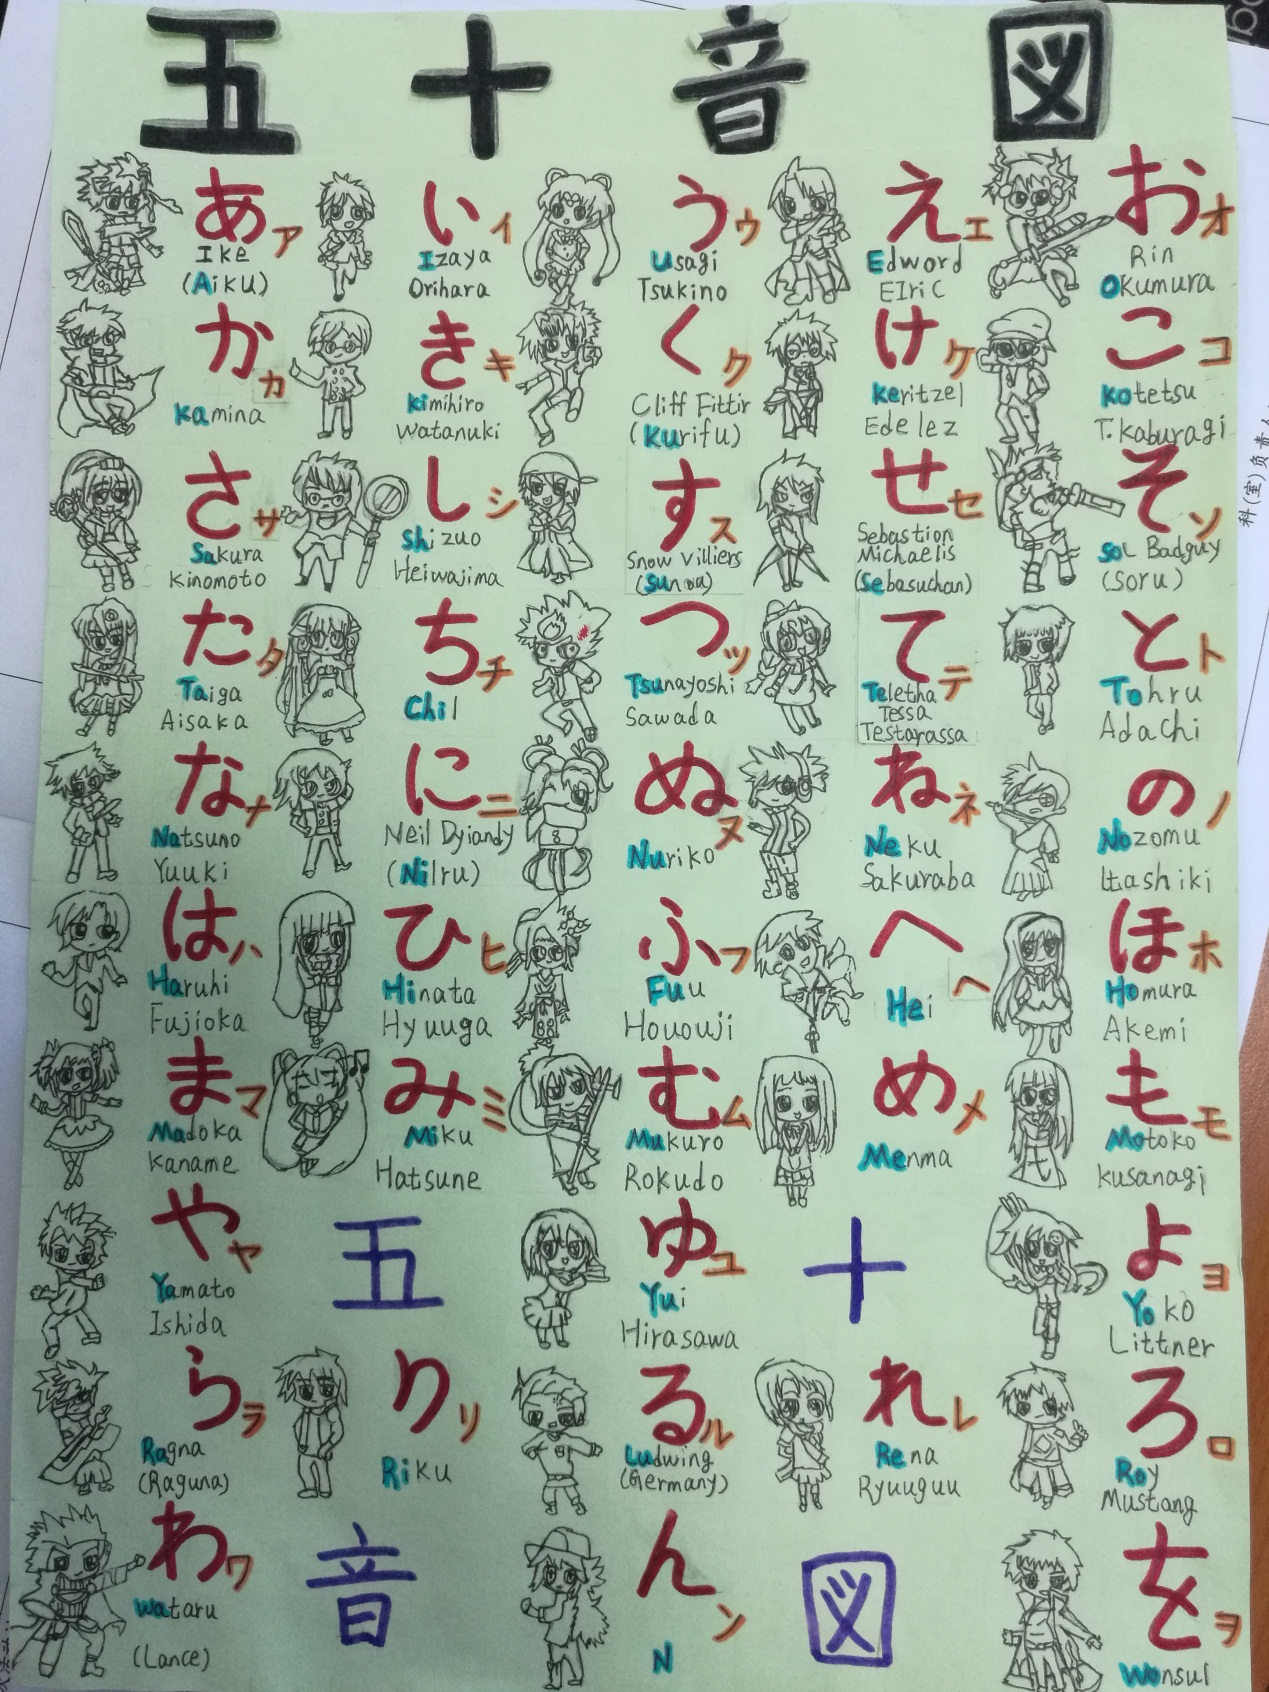 五十音図
あ ア Ike (Aiku)
い イ Izaya Orihara
う ウ Usagi Tsukino
え エ Edword Elric
お オ Rin Okumura
か カ Kamina
き キ Kimihiro Watanuki
く ク Cliff Fittir (Kurifu)
け ケ Keritzel Edelez
こ コ Kotetsu T.Kaburagi
さ サ Sakura Kinomoto
し シ Shizuo Heiwajima
す ス Snow Villiers (Sunoa)
せ セ Sebastion Michaelis (Sebasuchan)
そ ソ Sol Badguy (Soru)
た タ Taiga Aisaka
ち チ Chil
つ ツ Tsunayoshi Sawada
て テ Teletha Tessa Testarassa
と ト Tohru Adachi
な ナ Natsuno Yuuki
に ニ Neil Dyiandy (Nilru)
ぬ ヌ Nuriko
ね ネ Neku Sakuraba
の ノ Nozomu Itashiki
は ハ Haruhi Fujioka
ひ ヒ Hinata Hyuuga
ふ フ Fuu Hououji
へ ヘ Hei
ほ ホ Homura Akemi
ま マ Madoka Kaname
み ミ Miku Hatsune
む ム Mukuro Rokudo
め メ Menma
も モ Motoko Kusanagi
や ヤ Yamato Ishida
五
ゆ ユ Yui Hirasawa
十
よ ヨ Yoko Littner
ら ラ Ragna (Raguna)
り リ Riku
る ル Ludwing (Germany)
れ レ Rena Ryuuguu
ろ ロ Roy Mustang
わ ワ Wataru (Lance)
音
ん ン N
図
を ヲ Wonsul
科(室)负责人